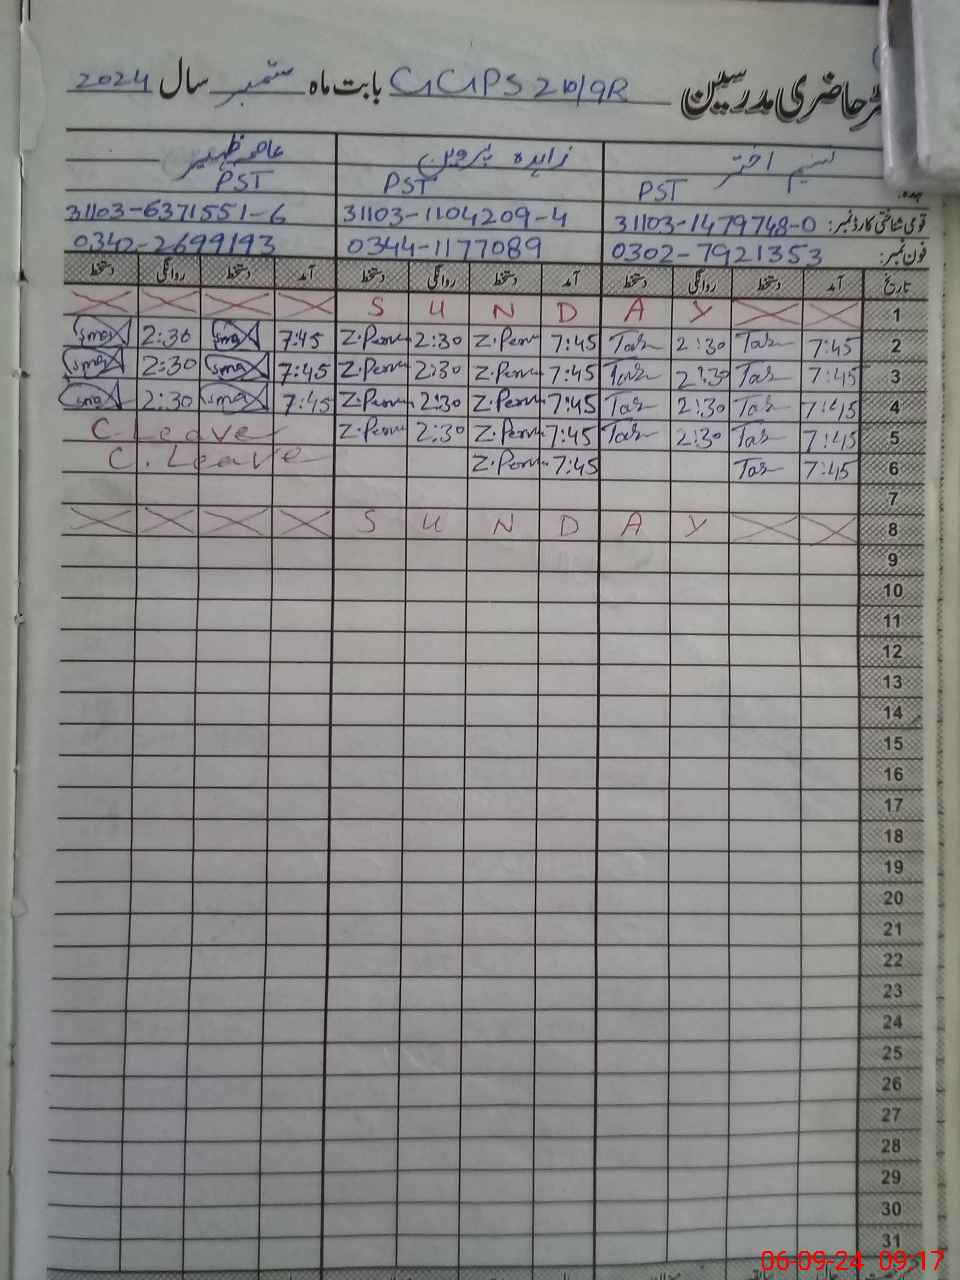 حاضری مدرسین GGPS 210/9R بابت ماہ ستمبر سال 2024
نسیم اختر زاہدہ پروین
PST PST PST
قومی شناختی کارڈ نمبر: 31103-1479748-0 31103-1104209-4 31103-6371551-6
فون نمبر: 0302-7921353 0344-1177089 0342-2699193
تاریخ آمد دستخط روانگی دستخط آمد دستخط روانگی دستخط آمد دستخط روانگی دستخط
1 S U N D A Y
2 7:45 Tas 2:30 Tas 7:45 Z.Perv 2:30 Z.Perv 7:45 2:30
3 7:45 Tas 2:30 Tas 7:45 Z.Perv 2:30 Z.Perv 7:45 2:30
4 7:45 Tas 2:30 Tas 7:45 Z.Perv 2:30 Z.Perv 7:45 2:30
5 7:45 Tas 2:30 Tas 7:45 Z.Perv 2:30 Z.Perv C.Leave
6 7:45 Tas 7:45 Z.Perv C.Leave
7
8 S U N D A Y
9
10
11
12
13
14
15
16
17
18
19
20
21
22
23
24
25
26
27
28
29
30
31
06-09-24 09:17